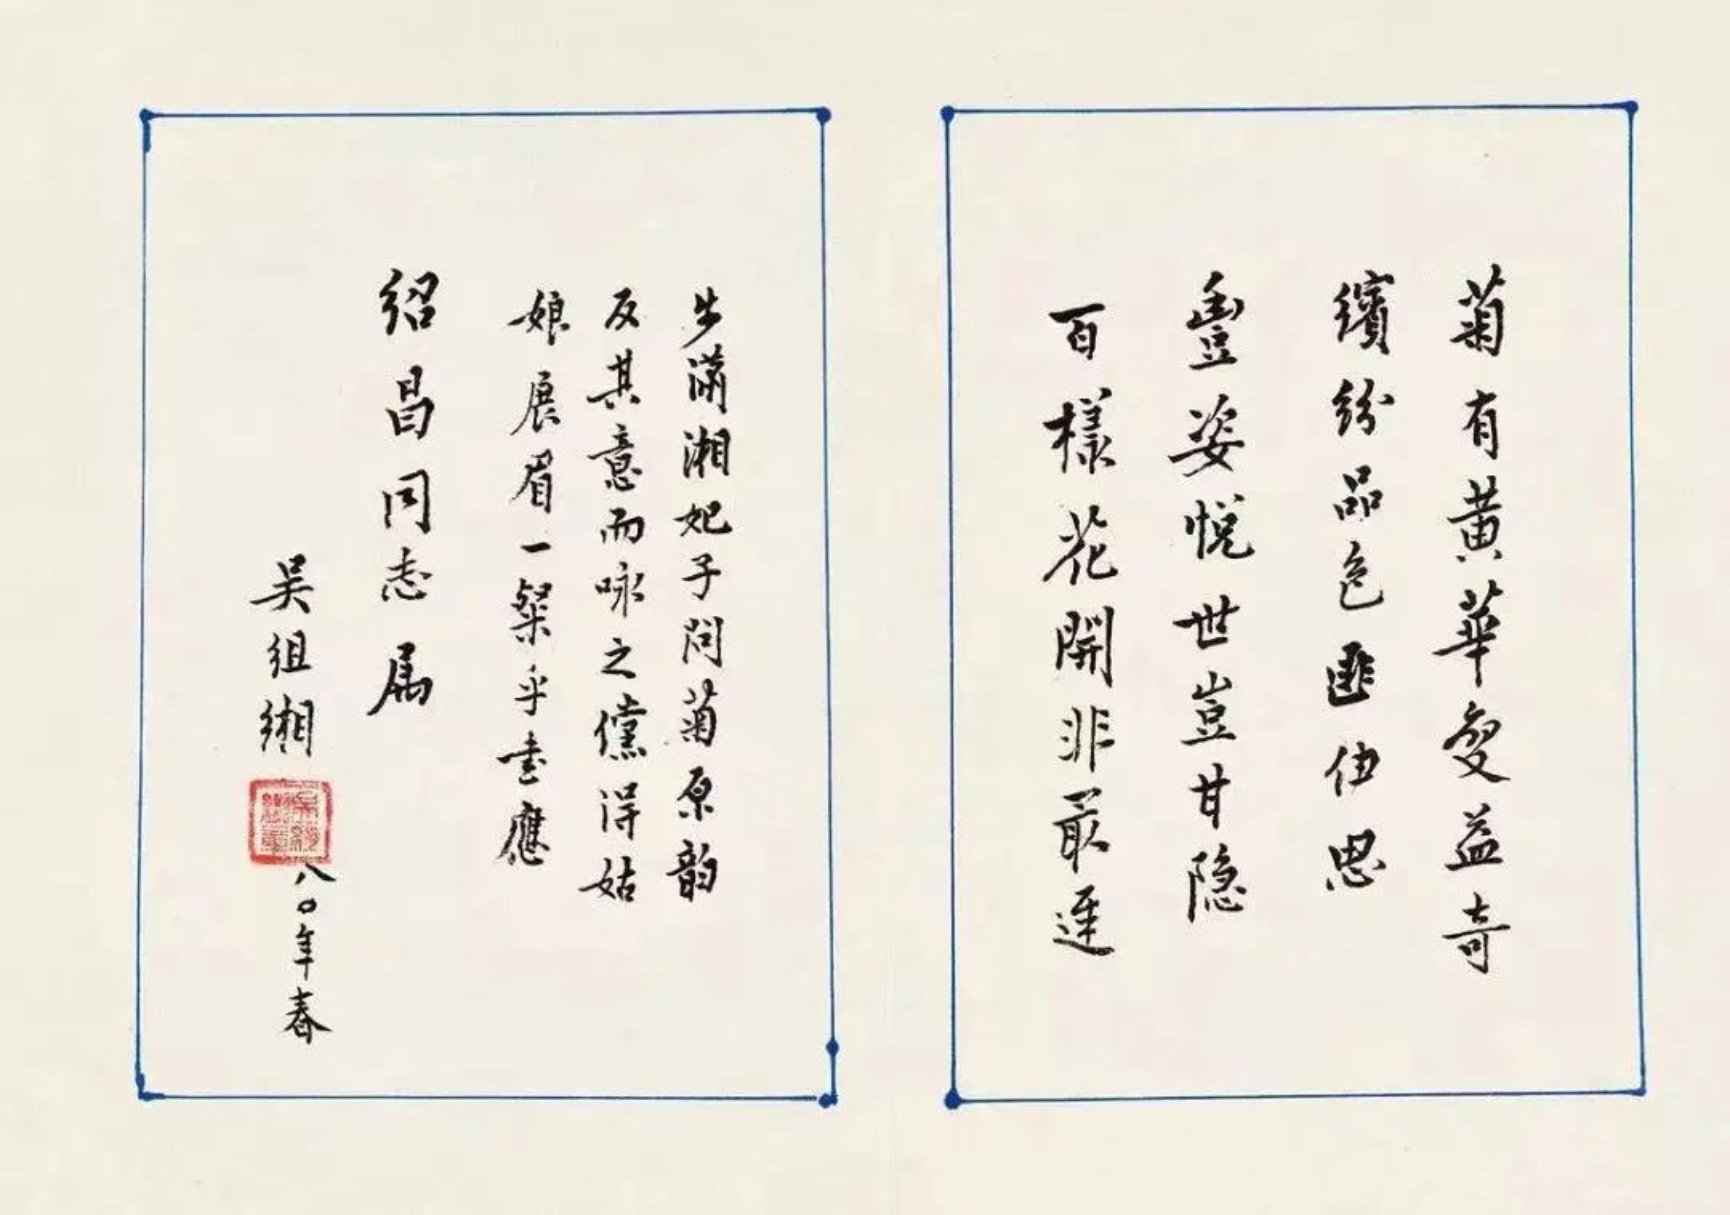 菊有黄華變益奇
繽紛品色匪伊思
豐姿悦世豈甘隐
百樣花開非最遲
步瀟湘妃子問菊原韵
反其意而咏之儻得姑
娘展眉一粲乎書應
绍昌同志属
吴组缃
八〇年春